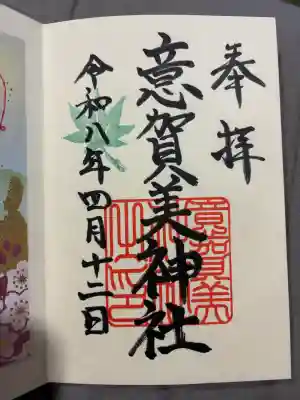 奉拝
意賀美神社
令和八年四月十二日
意賀美